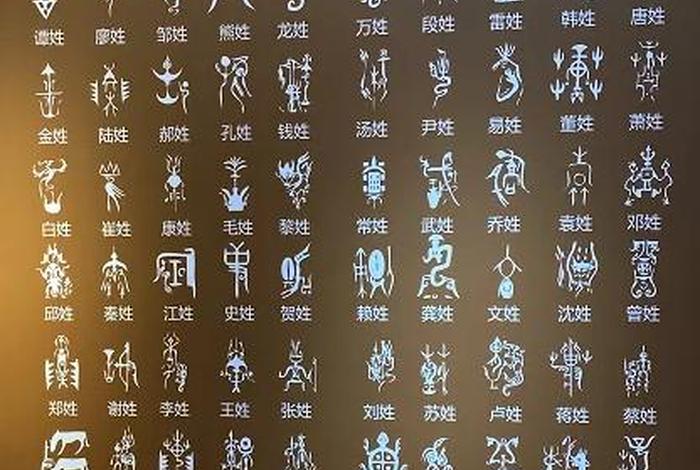 谭姓 廖姓 邹姓 熊姓 龙姓 万姓 段姓 雷姓 韩姓 唐姓
金姓 陆姓 郝姓 孔姓 钱姓 汤姓 尹姓 易姓 董姓 萧姓
白姓 崔姓 康姓 毛姓 黎姓 常姓 武姓 乔姓 袁姓 邓姓
邱姓 秦姓 江姓 史姓 贺姓 赖姓 龚姓 文姓 沈姓 曾姓
郑姓 谢姓 李姓 王姓 张姓 刘姓 苏姓 卢姓 蒋姓 蔡姓